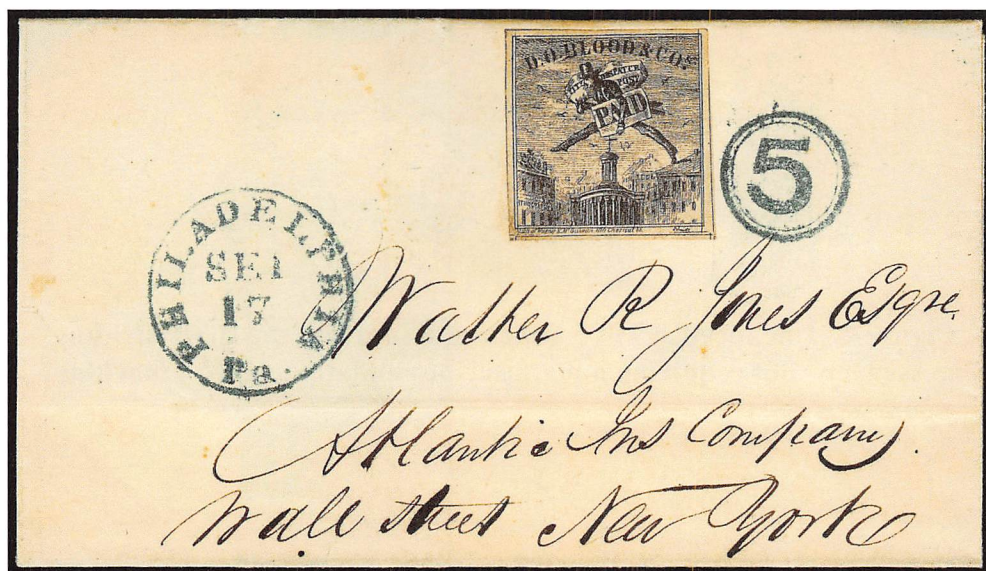 D.O. BLOOD & Co's
CITY DESPATCH
POST
PAID
5
PHILADELPHIA
SEP
17
Pa.
Walter R Jones Esqre.
Atlantic Ins Company.
Wall Street New York